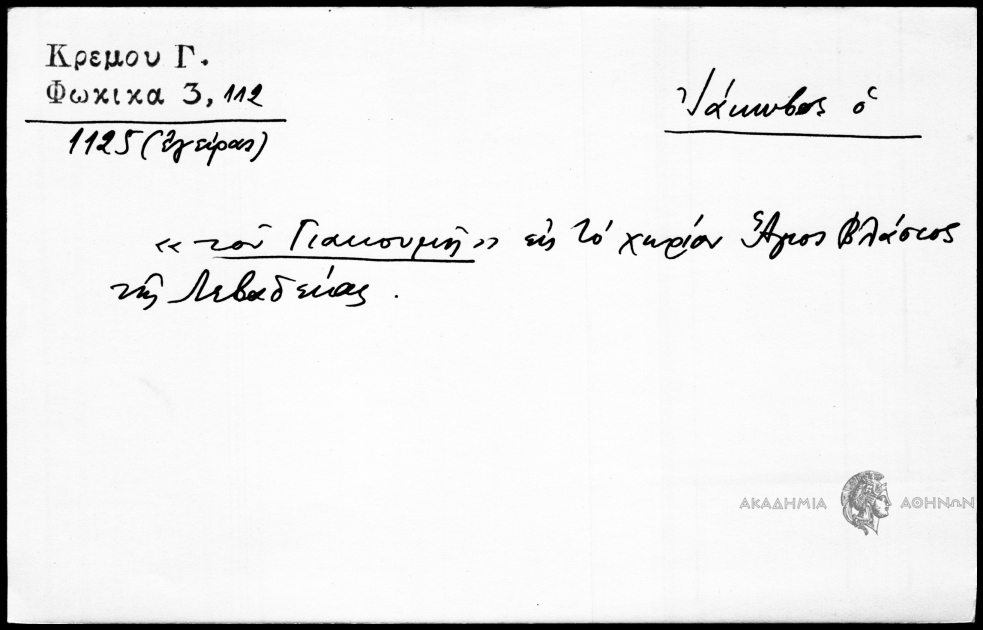 Κρεμου Γ.
Φωκικα 3, 112
1125 (Ἐγείρας)
Ἰάκωβος ὁ
«τοῦ Γιακουμῆ» εἰς τὸ χωρίον Ἅγιος Βλάσιος
τῆς Λεβαδείας.
ΑΚΑΔΗΜΙΑ ΑΘΗΝΩΝ